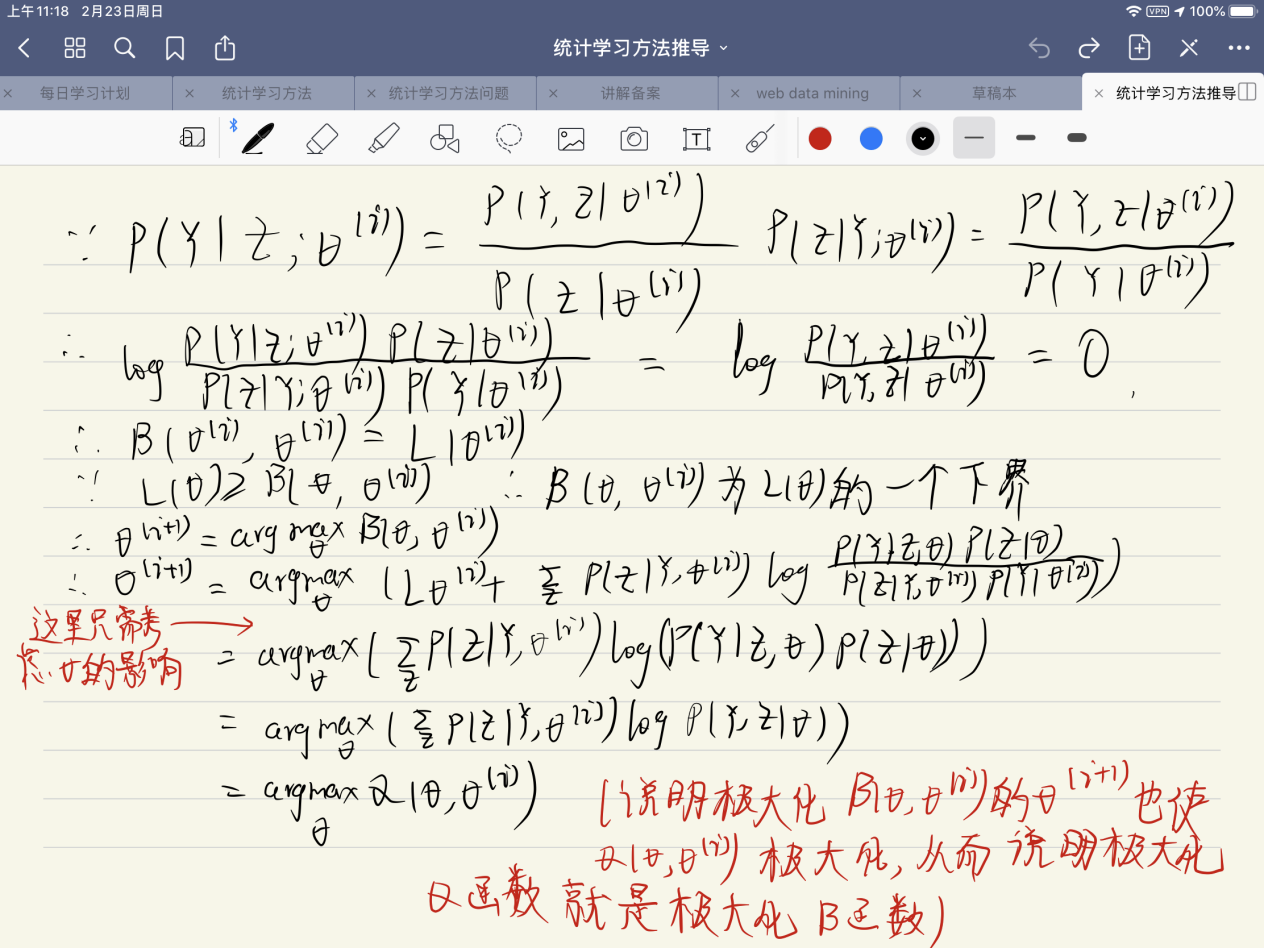 上午11:18 2月23日周日 VPN 100%
统计学习方法推导
每日学习计划 统计学习方法 统计学习方法问题 讲解备案 web data mining 草稿本 统计学习方法推导
T
∵ P(Y|Z;θ^(i)) = P(Y,Z|θ^(i)) / P(Z|θ^(i)) P(Z|Y;θ^(i)) = P(Y,Z|θ^(i)) / P(Y|θ^(i))
∴ log P(Y|Z;θ^(i)) P(Z|θ^(i)) / P(Z|Y;θ^(i)) P(Y|θ^(i)) = log P(Y,Z|θ^(i)) / P(Y,Z|θ^(i)) = 0,
∴ B(θ^(i), θ^(i)) = L(θ^(i))
∵ L(θ) ≥ B(θ, θ^(i)) ∴ B(θ, θ^(i))为L(θ)的一个下界
∴ θ^(i+1) = arg max_θ B(θ, θ^(i))
∴ θ^(i+1) = argmax_θ (Lθ^(i) + Σ_Z P(Z|Y,θ^(i)) log P(Y|Z,θ) P(Z|θ) / P(Z|Y,θ^(i)) P(Y|θ^(i)))
这里只需考
虑θ的影响
= argmax_θ (Σ_Z P(Z|Y,θ^(i)) log(P(Y|Z,θ) P(Z|θ)))
= argmax_θ (Σ_Z P(Z|Y,θ^(i)) log P(Y,Z|θ))
= argmax_θ Q(θ,θ^(i))
(说明极大化 B(θ,θ^(i))的θ^(i+1)也使
Q(θ,θ^(i)) 极大化,从而说明极大化
Q函数就是极大化B函数)